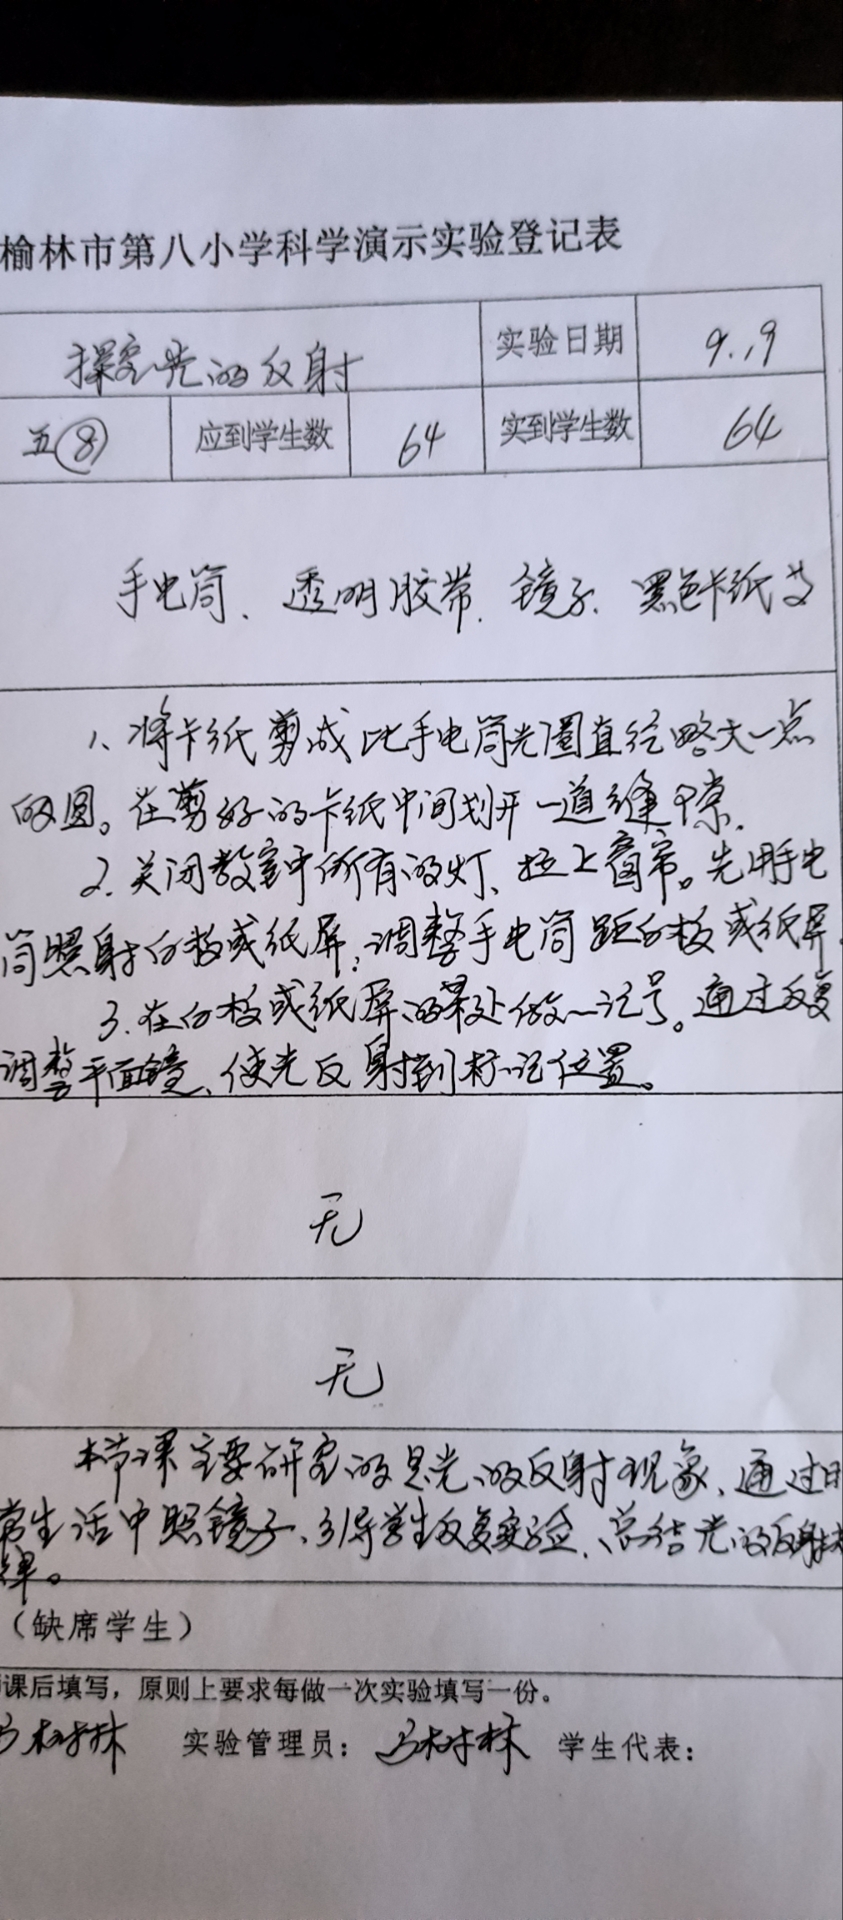 榆林市第八小学科学演示实验登记表
探究光的反射 实验日期 9.19
五⑧ 应到学生数 64 实到学生数 64
手电筒、透明胶带、镜子、黑色卡纸等
1、将卡纸剪成比手电筒光圈直径略大一点
的圆。在剪好的卡纸中间划开一道缝隙.
2、关闭教室中所有的灯、拉上窗帘。先用手电
筒照射白板或纸屏,调整手电筒距白板或纸屏.
3、在白板或纸屏的某处做一记号。通过反复
调整平面镜、使光反射到标记位置。
无
无
本节课主要研究的是光的反射现象、通过日
常生活中照镜子、引导学生反复实验、总结光的反射
律。
(缺席学生)
课后填写，原则上要求每做一次实验填写一份。
马树林 实验管理员：马树林 学生代表：